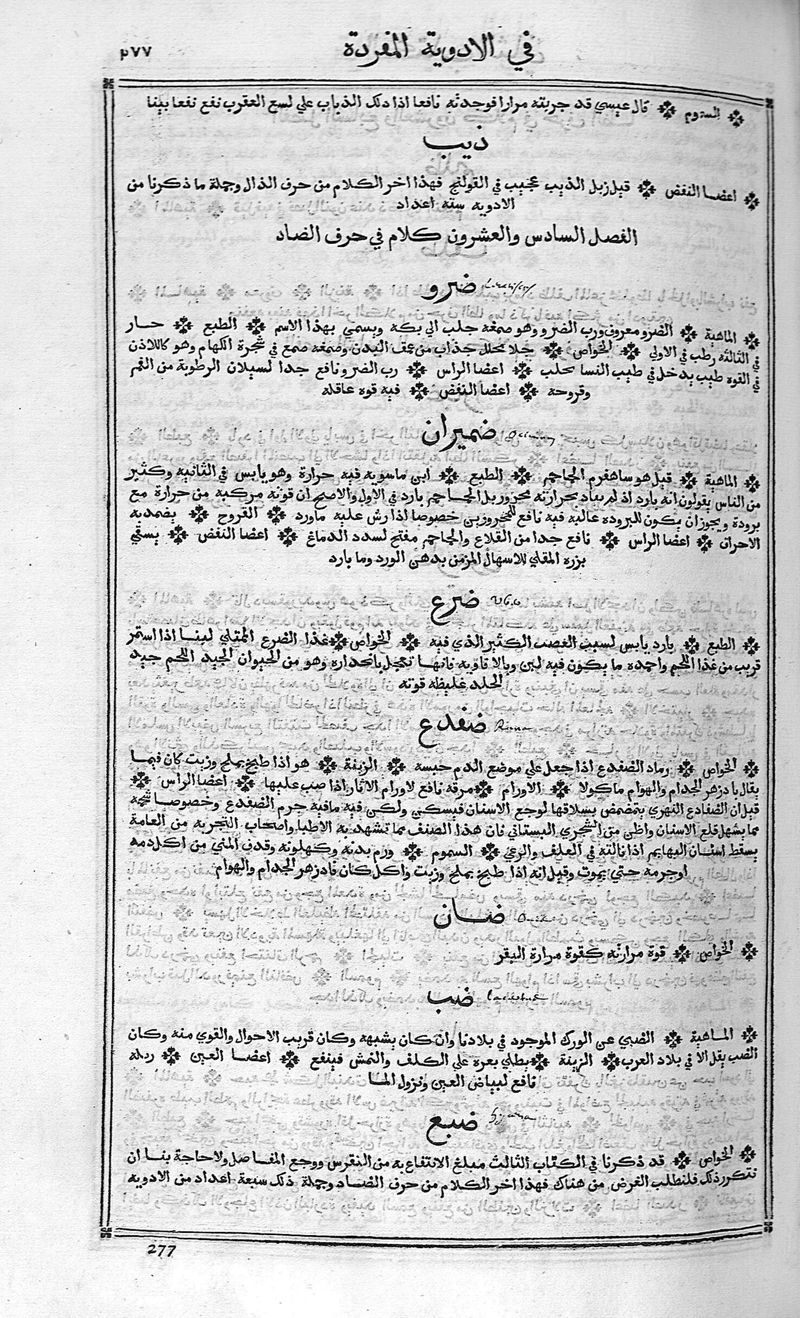 ٢٧٧ في الادوية المفردة
❖ السموم ❖ قال عيسي قد جربته مرارا فوجدته نافعا اذا دلك الذباب علي لسع العقرب نفع نفعا بينا
ذيب
❖ اعضا النفض ❖ قيل زبل الذيب عجيب في القولنج فهذا اخر الكلام من حرف الذال وجملة ما ذكرنا من
الادويه سته اعداد
الفصل السادس والعشرون كلام في حرف الضاد
ضرو
❖ الماهية ❖ الضرو معروف ورب الضرو وهو صمغه جلب الي بكه ويسمي بهذا الاسم ❖ الطبع ❖ حار
في الثالثه رطب في الاولي ❖ الخواص ❖ جلا محلل جذاب من عمق البدن وصمغه صمغ في شجرة الكهام وهو كاللاذن
في القوه طيب يدخل في طيب النسا حلب ❖ اعضا الراس ❖ رب الضرو نافع جدا لسيلان الرطوبة من الفم
وقروحه ❖ اعضا النفض ❖ فيه قوه عاقله
ضميران
❖ الماهية ❖ قيل هو ساهفرم الجاجم ❖ الطبع ❖ ابن ماسويه فيه حرارة وهو يابس في الثانيه وكثير
من الناس يقولون انه بارد اذ لم يباد بحرارته محرور بل الجماجم بارد في الاول والاصح ان قوته مركبه من حرارة مع
برودة ويجوز ان يكون للبروده غالبه فيه نافع للمحرورين خصوصا اذا رش عليه ماورد ❖ القروح ❖ يضمد به
الاحراق ❖ اعضا الراس ❖ نافع جدا من القلاع والجماجم مفتح لسدد الدماغ ❖ اعضا النفض ❖ يسقي
بزره المقلي للاسهال المزمن بدهن الورد وما بارد
ضرع
❖ الطبع ❖ بارد يابس لسبب العصب الكثير الذي فيه ❖ الخواص ❖ غذا الضرع المقلي لبنا اذا استمر
قريب من غذا اللحم واحمده ما يكون فيه لبن وبالافاويه فانها تعجل بانحداره وهو من الحيوان الجيد اللحم جيد
الخلد غليظه قوته
ضفدع
❖ الخواص ❖ رماد الضفدع اذا جعل علي موضع الدم حبسه ❖ الزينة ❖ هو اذا طبخ بملح وزيت كان فيما
يقال بادزهر الجذام والهوام ماكولا ❖ الاورام ❖ مرقه نافع لاورام الاثار اذا صب عليها ❖ اعضا الراس ❖
قيل ان الضفادع النهري يتمضمض بسلاقها لوجع الاسنان فيسكن ولكن فيه مافيه جرم الضفدع وخصوصا شحمه
مما يسهل قلع الاسنان واظن من الشجري البستاني فان هذا الصنف مما تشهد به الاطبا واصحاب التجربه من العامة
يسقط اسنان البهايم اذا نالته في العلف والرعي ❖ السموم ❖ ورم بدنه وكهلونه وقذف المني من اكل دمه
اوجرمه حتي يموت وقيل انه اذا طبخ بملح وزيت واكل كان فادزهر الجذام والهوام
ضان
❖ الخواص ❖ قوة مرارته كقوة مرارة البقر
ضب
❖ الماهية ❖ الضب غير الورل الموجود في بلادنا وان كان يشبهه وكان قريب الاحوال والقوي منه وكان
الضب يقل الا في بلاد العرب ❖ الزينة ❖ يطلي بعره علي الكلف والنمش فينفع ❖ اعضا العين ❖ زبله
نافع لبياض العين ونزول الما
ضبع
❖ الخواص ❖ قد ذكرنا في الكتاب الثالث مبلغ الانتفاع به من النقرس ووجع المفاصل ولاحاجة بنا ان
نتكرر ذلك فلنطلب الغرض من هناك فهذا اخر الكلام من حرف الضاد وجملة ذلك سبعة اعداد من الادويه
277